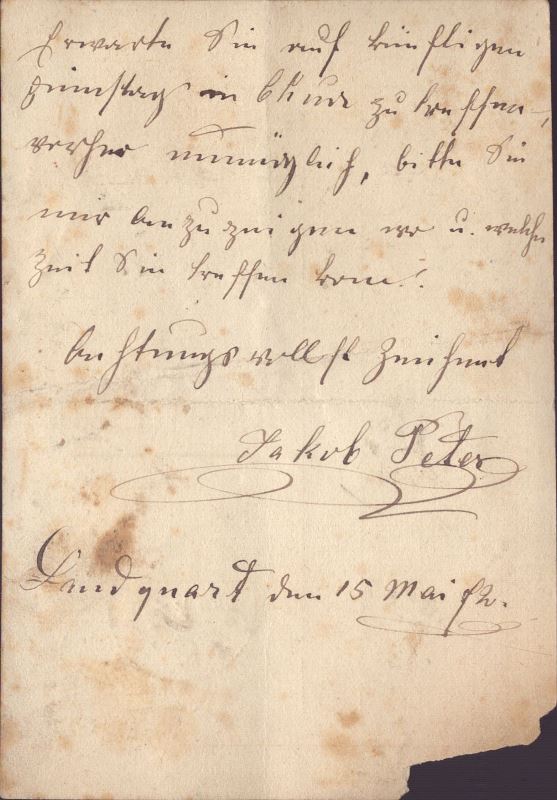 Erwarte Sie auf künftigen
Dienstag in Chur zu treffen,
vorher unmöglich, bitte Sie
mir anzuzeigen wo u. welche
Zeit Sie treffen kann.
Achtungsvollst Zeichnet
Jakob Peter
Landquart den 15 Mai